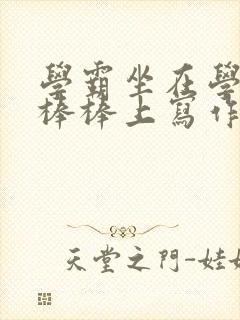 學霸坐在學
棒棒上寫作
天堂之門-娃娃